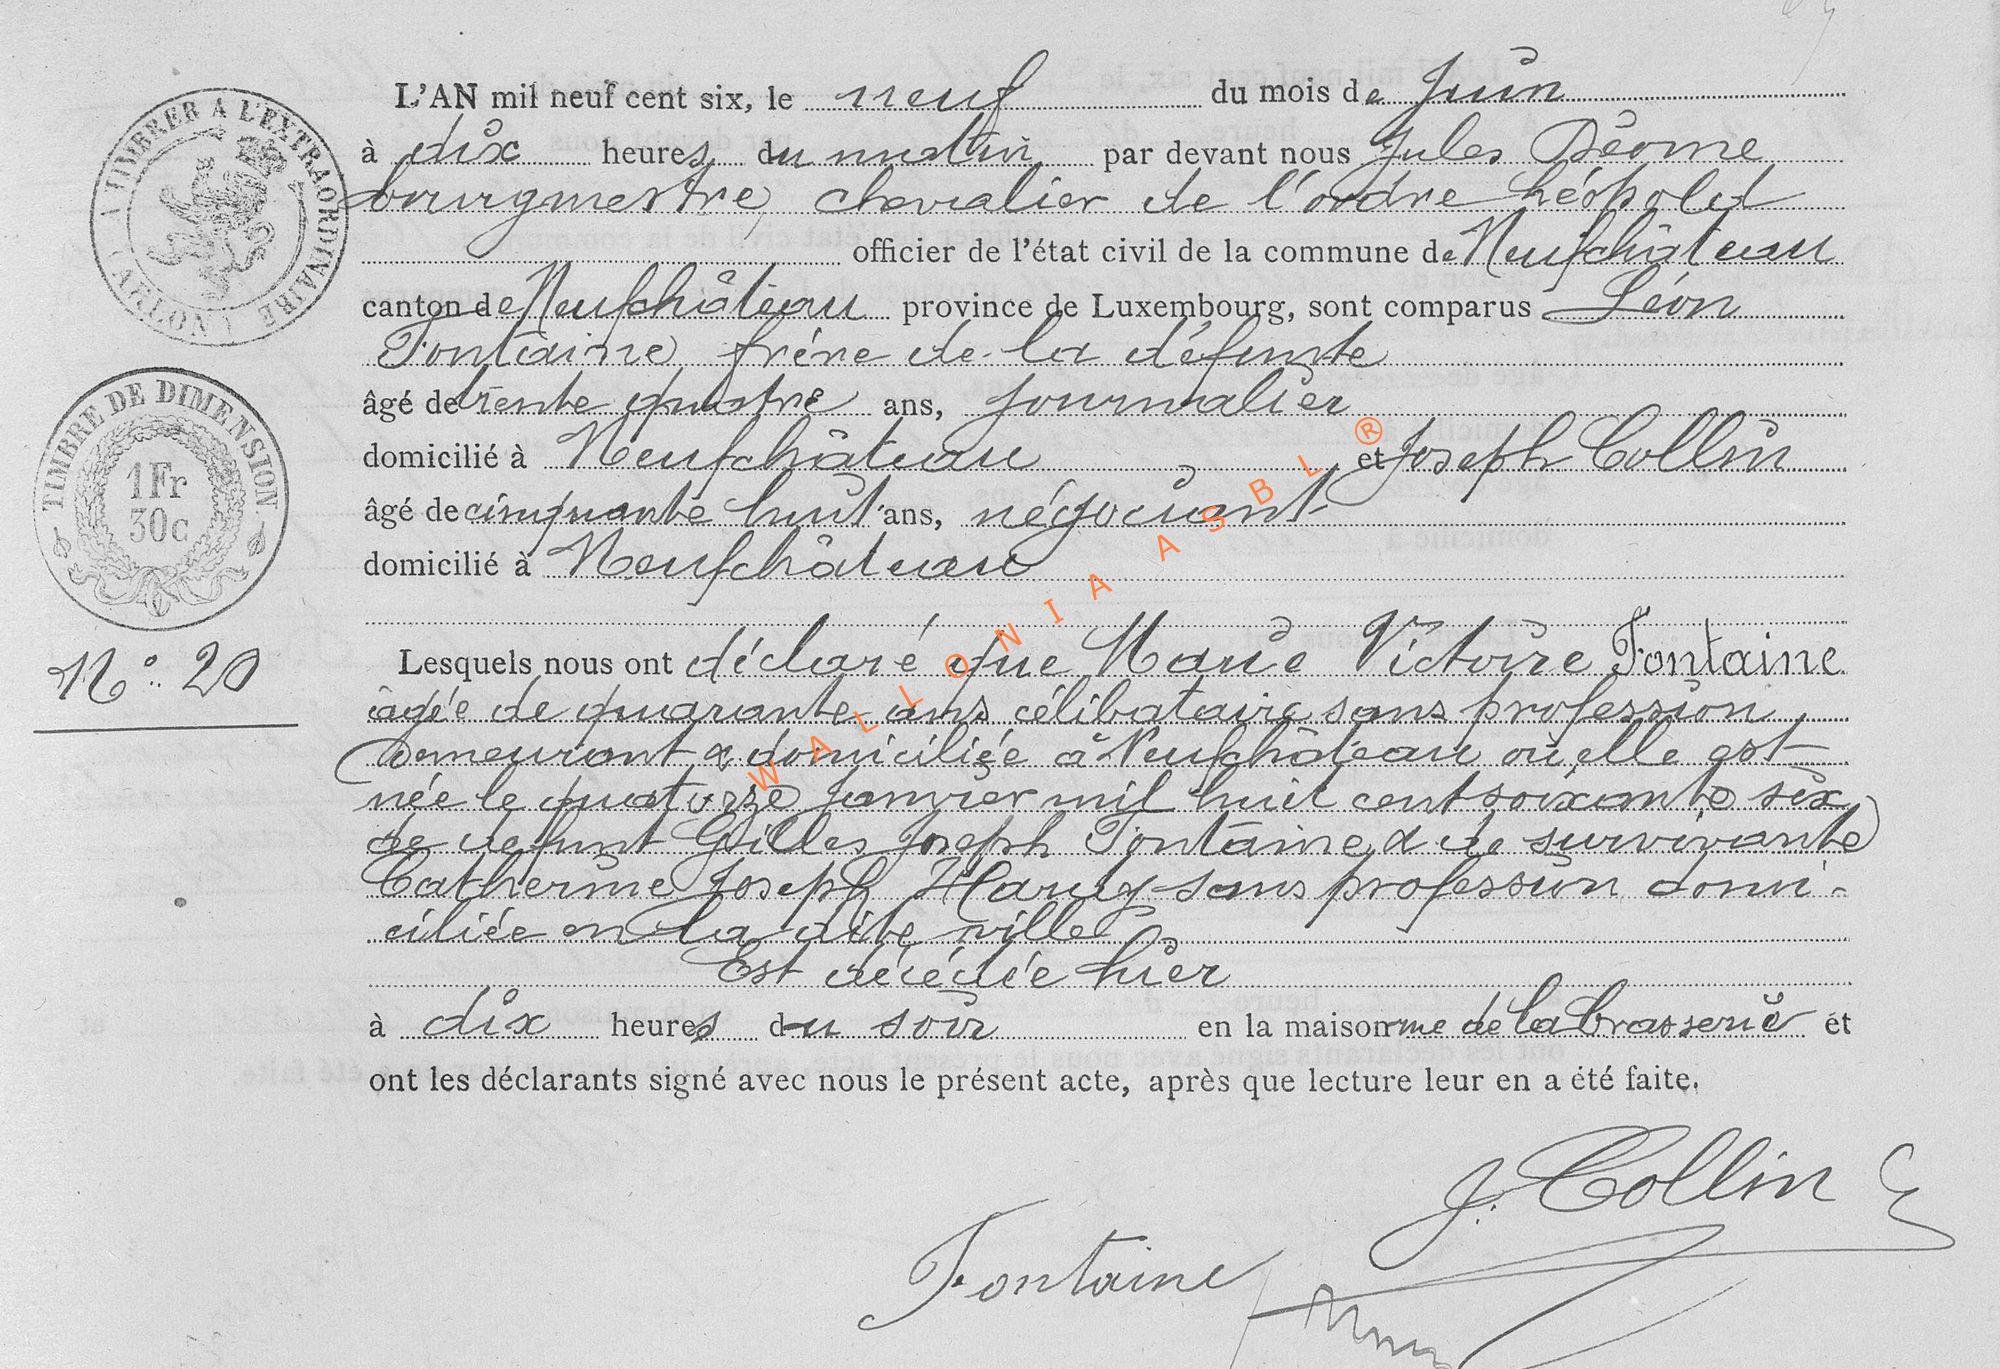 L'AN mil neuf cent six, le neuf du mois de Juin
à dix heures du matin par devant nous Jules Déome
bourgmestre, chevalier de l'ordre Léopold
officier de l'état civil de la commune de Neufchâteau
canton de Neufchâteau province de Luxembourg, sont comparus Léon
Fontaine frère de la défunte
âgé de trente quatre ans, journalier
domicilié à Neufchâteau et Joseph Collin
âgé de cinquante huit ans, négociant
domicilié à Neufchâteau
Lesquels nous ont déclaré que Marie Victoire Fontaine
âgée de quarante ans célibataire sans profession
demeurant & domiciliée à Neufchâteau où elle est
née le quatorze Janvier mil huit cent soixante six
de defunt Gilles Joseph Fontaine & de survivante
Catherine Joseph Hardy sans profession domi-
ciliée en la dite ville
Est décédée hier
à dix heures du soir en la maison rue de la brasserie et
ont les déclarants signé avec nous le présent acte, après que lecture leur en a été faite.
J. Collin
Fontaine
A TIMBRER A L'EXTRAORDINAIRE
( ARLON )
TIMBRE DE DIMENSION
1Fr
30c
N° 20
WALLONIA ASBL ®